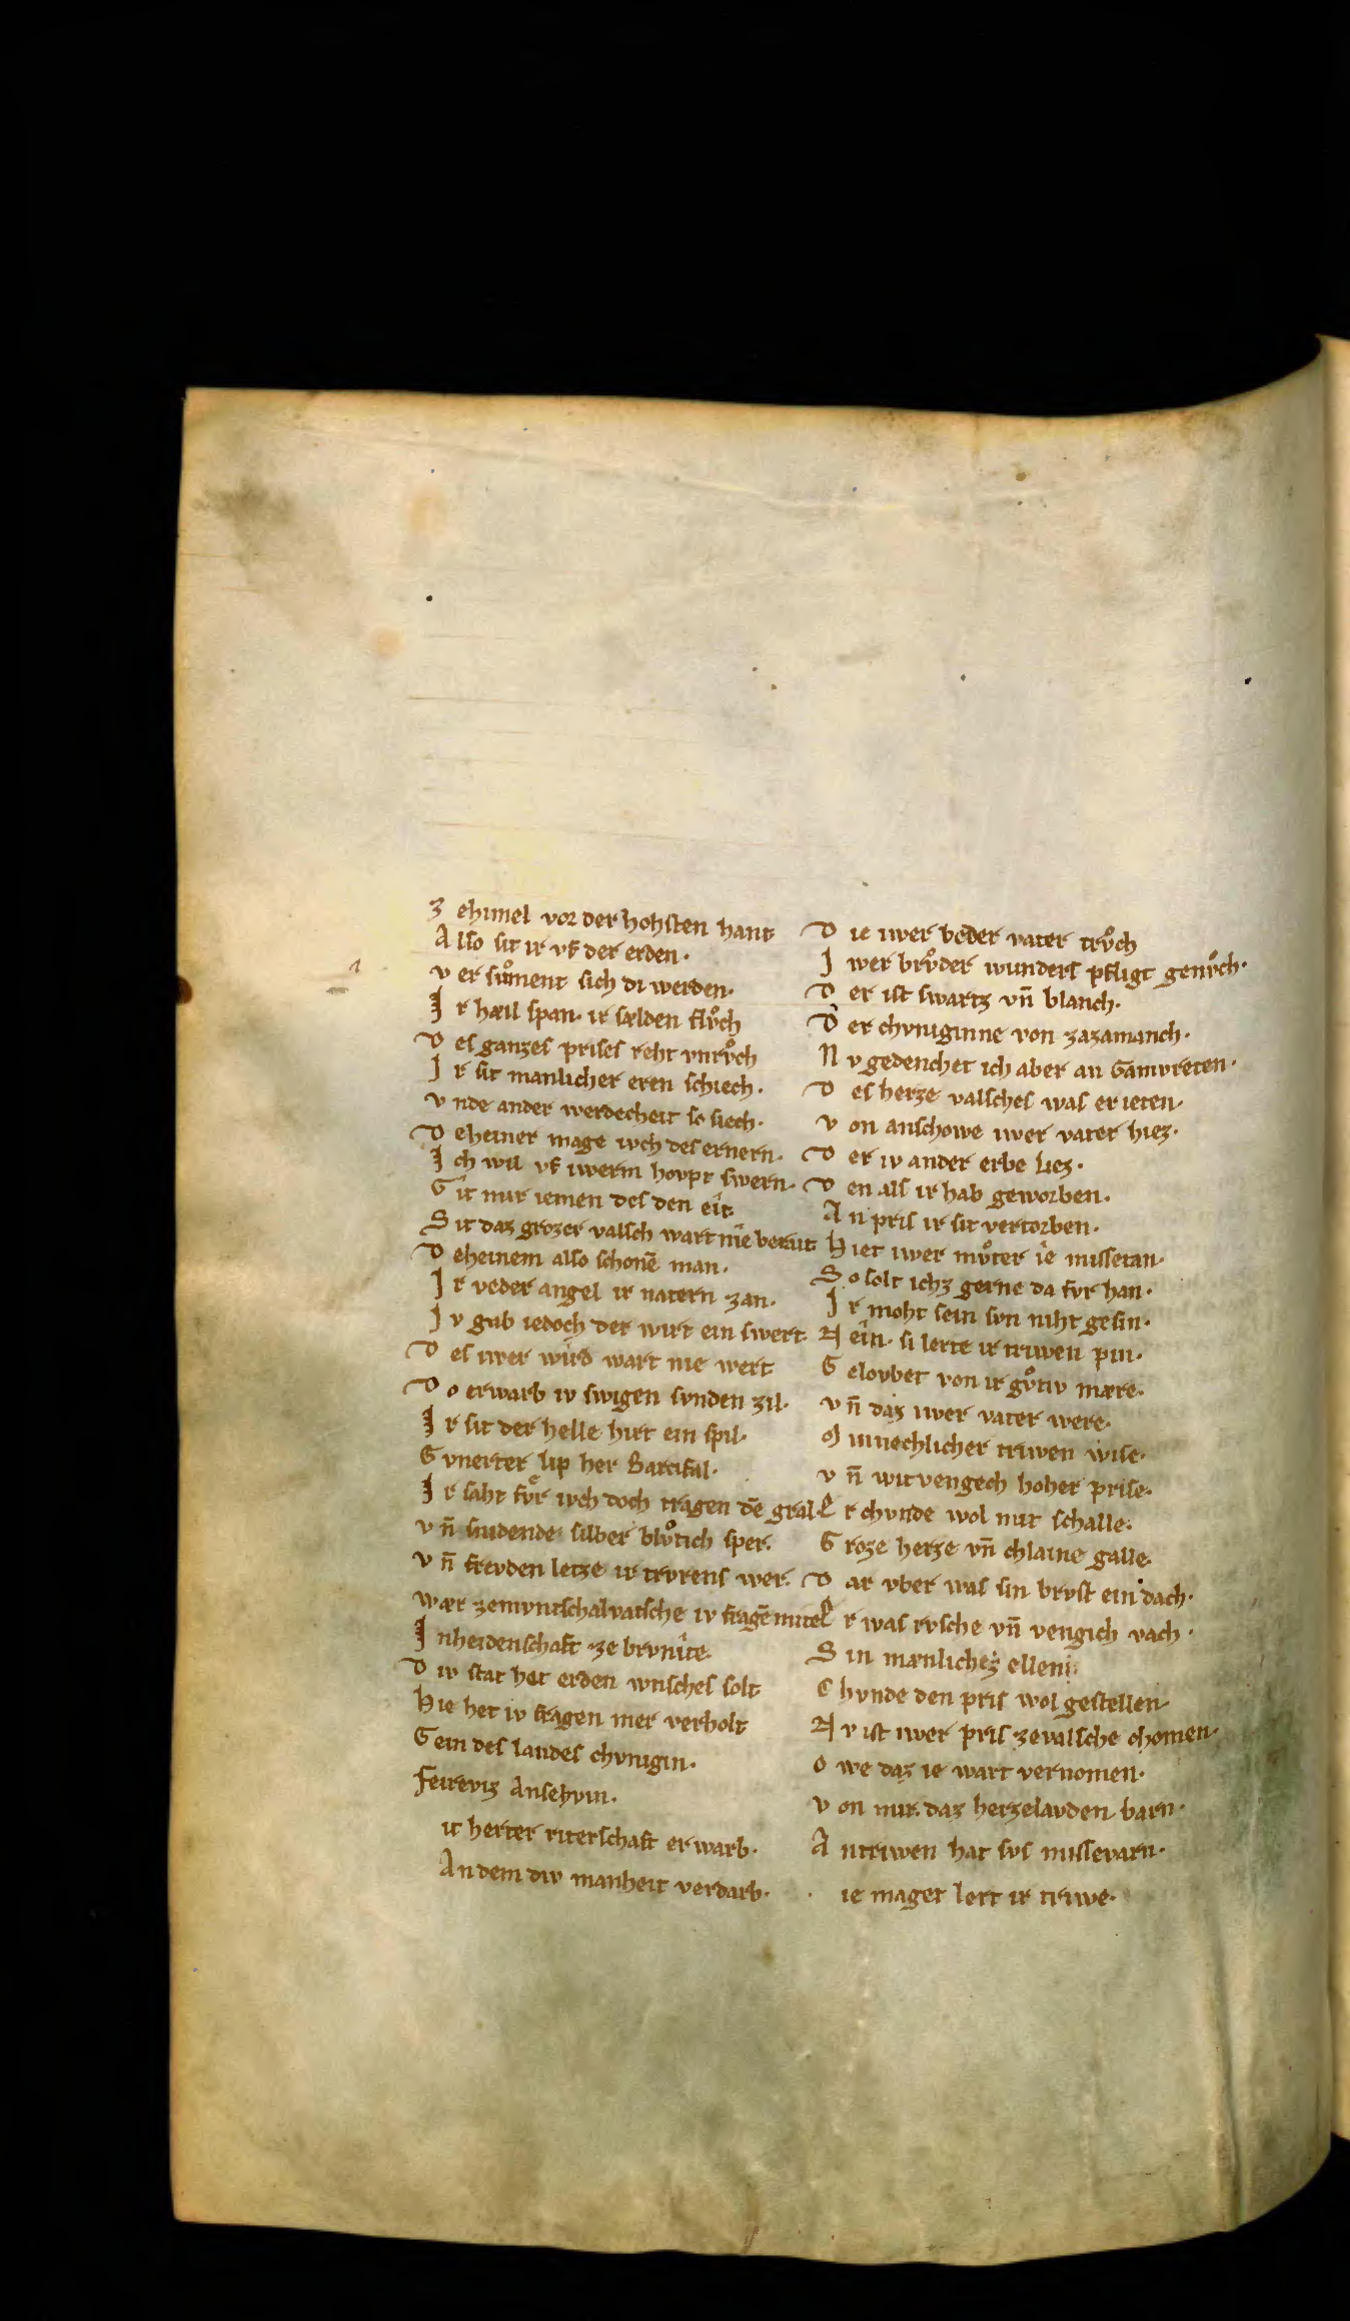 Z ehimel vor der hohsten hant
A lso sit ir vf der erden·
v er sůment sich di werden·
I r hæil span· ir sælden flv̊ch
D es ganzes prises reht vnrv̊ch
I r sit manlicher eren schiech·
v nde ander werdecheit so siech·
D eheiner mage iwch des ernern·
I ch wil vf iwerm hovpt swern·
G it mir iemen des den eit
S it daz grozer valsch wart nie bereit
D eheinem also schonē man·
I r veder angel ir natern zan·
I v gab iedoch der wirt ein swert·
D es iwer wird wart nie wert
D o erwarb iv swigen svnden zil·
I r sit der helle hirt ein spil·
G vnerter lip her Parcifal·
I r saht fvr iwch doch tragen dē gral·
v n̄ snidende silber blv̊tich sper·
v n̄ frevden letze ir trvrens wer·
wær zemvntschalvatsche iv fragē mite
I nheidenschaft ze brvnite·
D iv stat het erden wnsches solt
Hie het iv fragen mer verholt
G ein des landes chvnigin·
Feirefiz Ansehvin·
it herter riterschaft erwarb·
An dem div manheit verdarb·
D ie iwer beder vater trv̊ch
I wer brv̊der wunders pfligt genv̊ch·
D er ist swartz vn̄ blanch·
D er chvniginne von zazamanch·
N v gedenchet ich aber an Gamvreten·
D es herze valsches was erieten·
v on anschowe iwer vater hiez·
D er iv ander erbe liez·
D en als ir hab geworben·
A n pris ir sit vertorben·
H iet iwer mv̊ter ie missetan·
S o solt ichz gerne da fvr han·
I r moht sein svn niht gesin·
N ein· si lerte ir triwen pin·
G elovbet von ir gv̊tiv mære·
v n̄ daz iwer vater were·
M innechlicher triwen wise·
v n̄ witvengech hoher prise·
E r chvnde wol mit schalle·
G roze herze vn̄ chlaine galle·
D ar vber was sin brvst ein dach·
E r was rvsche vn̄ vengich vach·
S in mænlichez ellen
C hvnde den pris wol gestellen
N v ist iwer pris zevalsche chomen·
O we daz ie wart vernomen·
v on mir· daz herzelavden barn·
A ntriwen hat svs missevarn·
ie maget lert ir triwe·